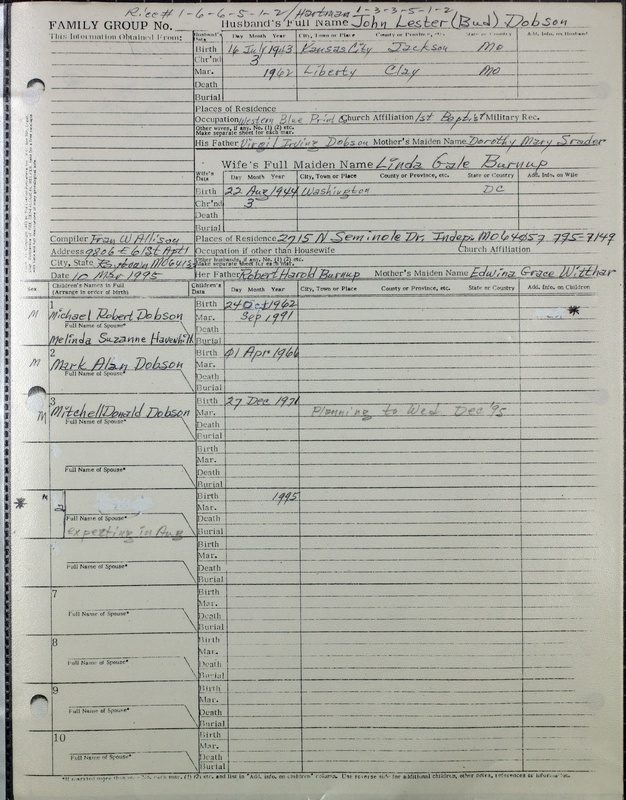 Rice# 1-6-6-5-1-2/ Hartman 1-3-3-5-1-2
FAMILY GROUP No. Husband's Full Name John Lester (Bud) Dobson
This Information Obtained From:
Husband's Data Day Month Year City, Town or Place County or Province, etc. State or Country Add. Info. on Husband
Birth 16 July 1943 Kansas City Jackson Mo
Chr'nd 3
Mar. 1962 Liberty Clay Mo
Death
Burial
Places of Residence
Occupation Western Blue Print Church Affiliation 1st Baptist Military Rec.
Other wives, if any. No. (1) (2) etc.
Make separate sheet for each mar.
His Father Virgil Irving Dobson Mother's Maiden Name Dorothy Mary Srader
Wife's Full Maiden Name Linda Gale Burnup
Wife's Data Day Month Year City, Town or Place County or Province, etc. State or Country Add. Info. on Wife
Birth 22 Aug 1944 Washington DC
Chr'nd 3
Death
Burial
Compiler Fran W Allison Places of Residence 2715 N Seminole Dr. Indep. MO 64057 795-7149
Address 9806 E 61st Apt 1 Occupation if other than Housewife Church Affiliation
City, State Raytown MO Other husbands, if any. No. (1) (2) etc.
Make separate sheet for each mar.
Date 10 Mar 1995 Her Father Robert Harold Burnup Mother's Maiden Name Edwina Grace Witthar
Sex Children's Names in Full (Arrange in order of birth) Children's Data Day Month Year City, Town or Place County or Province, etc. State or Country Add. Info. on Children
1 Birth 24 Oct 1962 *
M Michael Robert Dobson Mar. Sep 1991
Full Name of Spouse* Death
Melinda Suzanne Havenhill Burial
2 Birth 01 Apr 1966
M Mark Alan Dobson Mar.
Full Name of Spouse* Death
Burial
3 Birth 27 Dec 1971
M Mitchell Donald Dobson Mar. Planning to Wed. Dec '95
Full Name of Spouse* Death
Burial
Birth
Mar.
Full Name of Spouse* Death
Burial
* Birth 1995
Mar.
Full Name of Spouse* Death
expecting in Aug Burial
Birth
Mar.
Full Name of Spouse* Death
Burial
7 Birth
Mar.
Full Name of Spouse* Death
Burial
8 Birth
Mar.
Full Name of Spouse* Death
Burial
9 Birth
Mar.
Full Name of Spouse* Death
Burial
10 Birth
Mar.
Full Name of Spouse* Death
Burial
(1) (2) etc. and list in "Add. info. on children" column. Use reverse side for additional children, other notes, references or information.